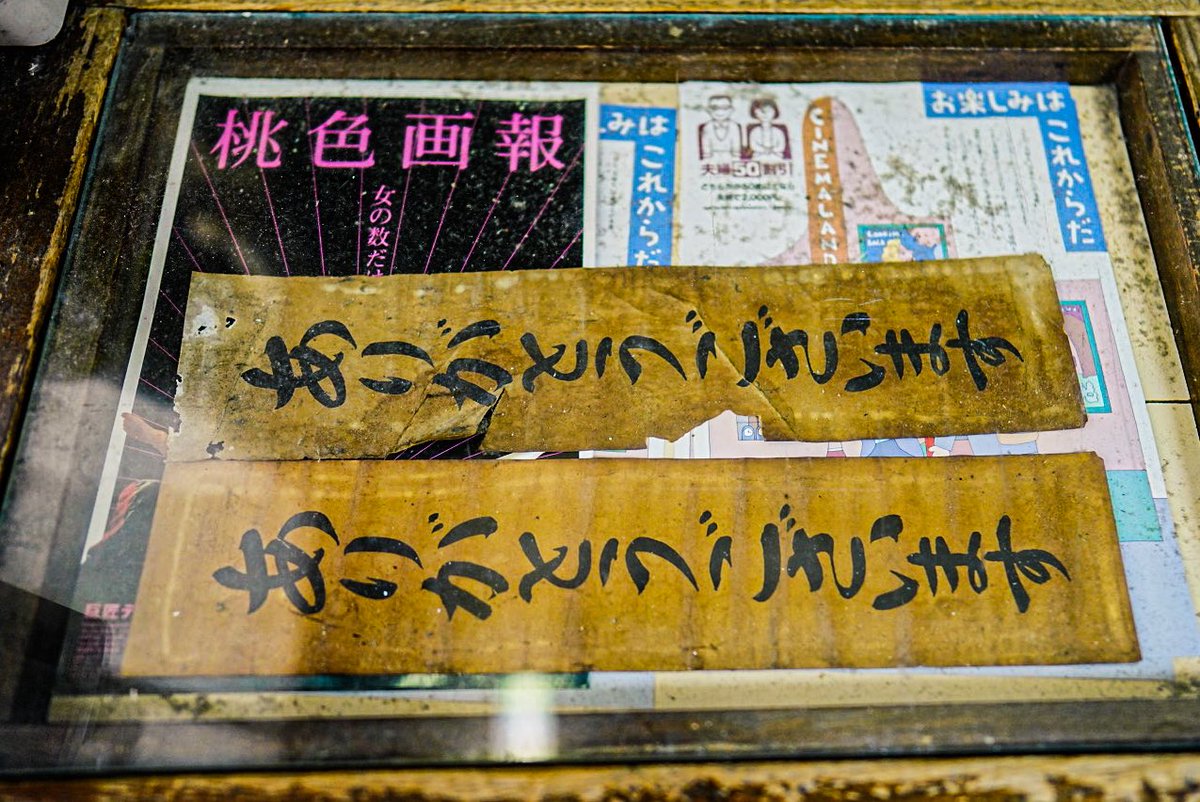 桃色画報
女の数だけ
みは これからだ
夫婦50割引
CINEMALAND
お楽しみは これからだ
ありがとうございます
ありがとうございます
巨匠